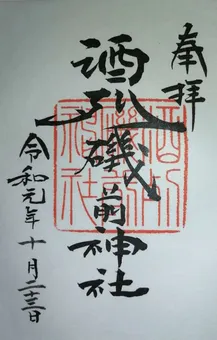 奉拝
酒列磯前神社
令和元年十月二十三日